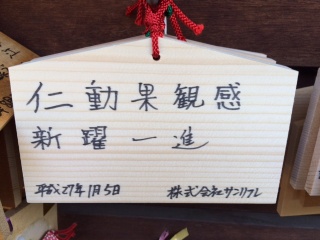 仁動果観感
新躍一進
平成27年1月5日 株式会社サンリフレ